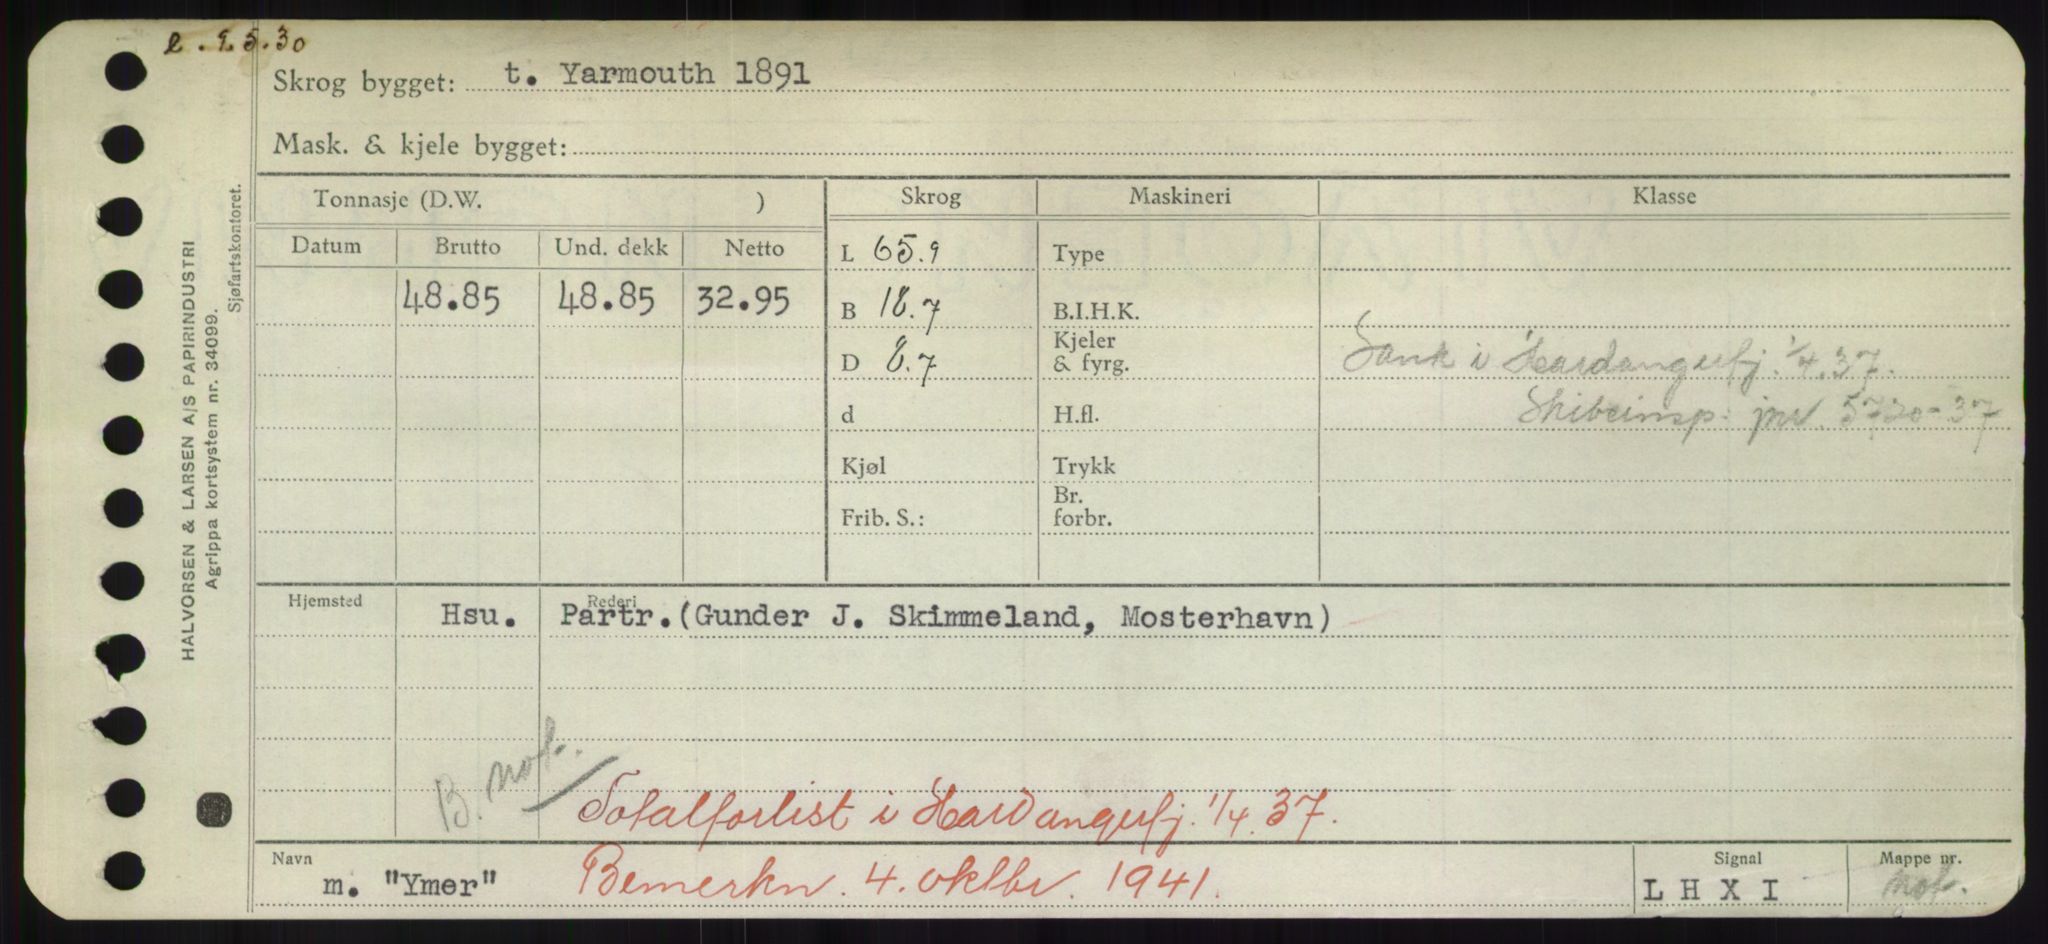 e. 9.5.30
Skrog bygget: t. Yarmouth 1891
Mask. & kjele bygget:
Tonnasje (D.W. ) Skrog Maskineri Klasse
Datum Brutto Und. dekk Netto L 65.9 Type
48.85 48.85 32.95 B 18.7 B.I.H.K.
D 8.7 Kjeler & fyrg. Sank i Hardangerfj. 1/4.37.
d H.fl. Skibeinsp. jnr. 5720-37
Kjøl Trykk
Frib. S.: Br. forbr.
Hjemsted Rederi
Hsu. Partr.(Gunder J. Skimmeland, Mosterhavn)
B. not.
Totalforlist i Hardangerfj. 1/4.37.
Navn Signal Mappe nr.
m. "Ymer" Bemerkn. 4. oktbr. 1941. L H X I not.
HALVORSEN & LARSEN A/S PAPIRINDUSTRI
Agrippa kortsystem nr. 34099.
Sjøfartskontoret.